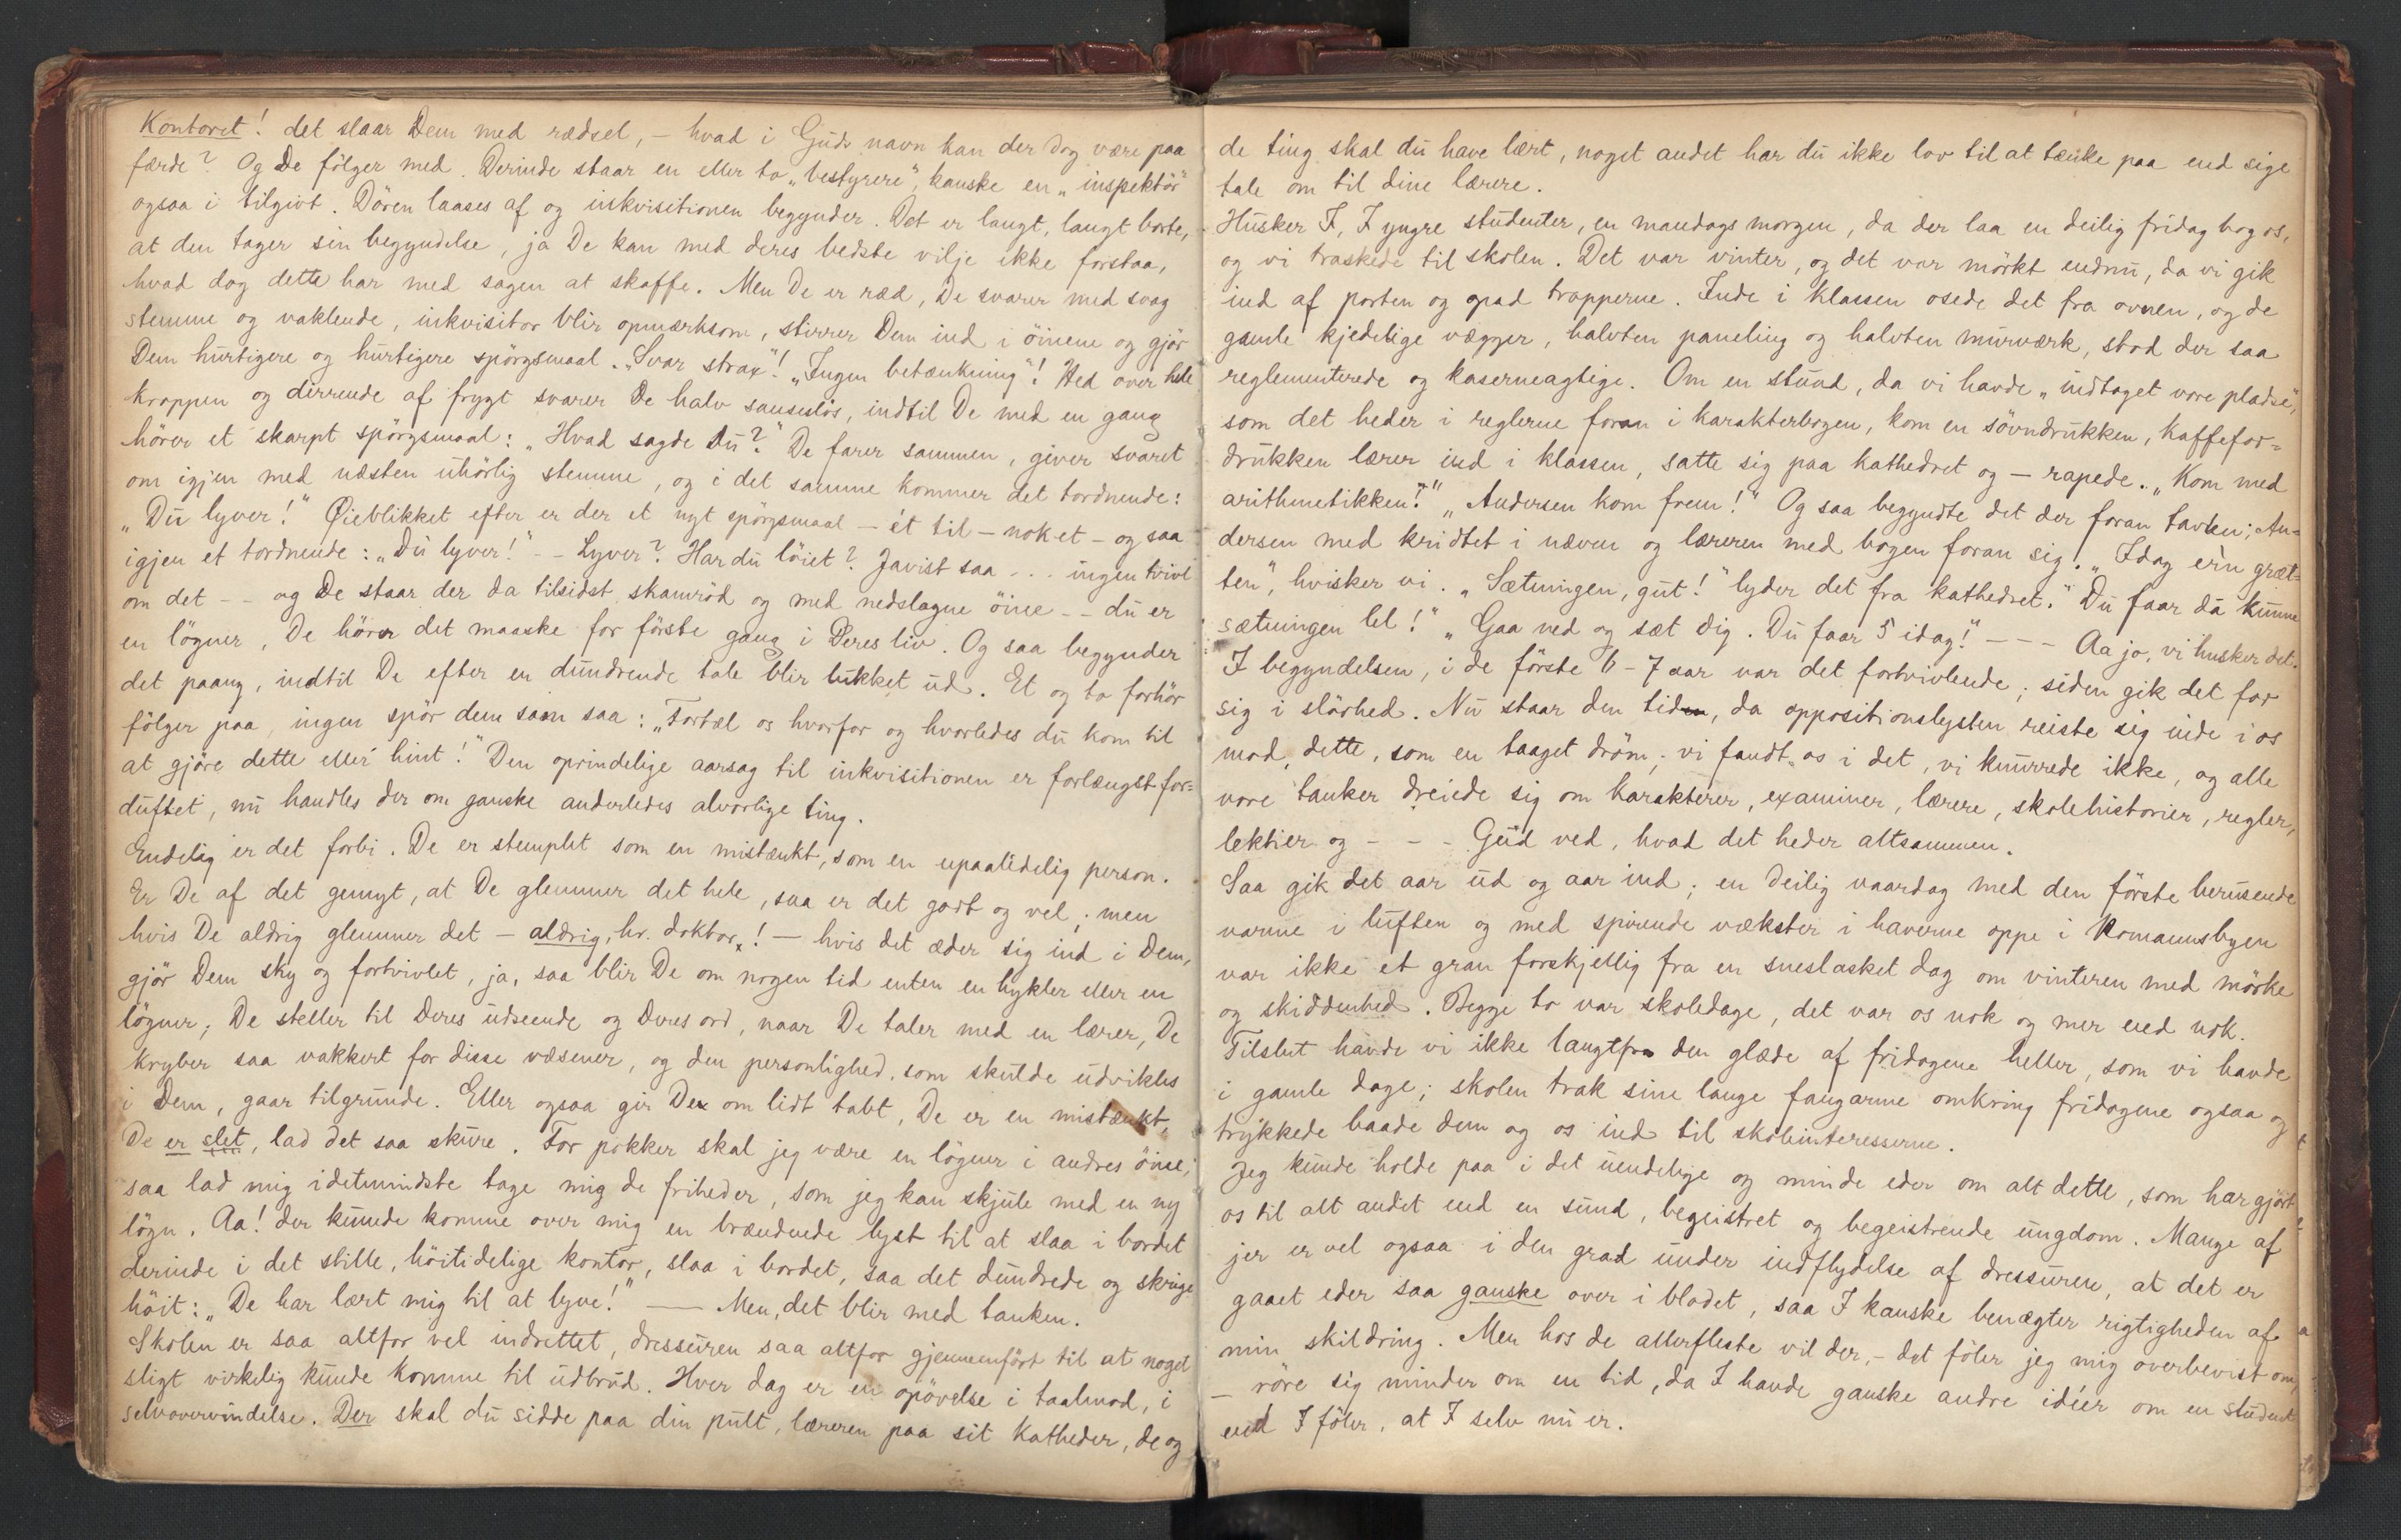 Kontoret! det slaar Dem med rædsel, – hvad i Guds navn kan der dog være paa
færde? Og De følger med. Derinde staar en eller to „bestyrere", kanske en „inspektør"
ogsaa i tilgivt. Døren laases af og inkvisitionen begynder. Det er langt, langt borte,
at den tager sin begyndelse, ja De kan med deres bedste vilje ikke forstaa,
hvad dog dette har med sagen at skaffe. Men De er ræd, De svarer med svag
stemme og vaklende, inkvisitor blir opmærksom, stirrer Dem ind i øinene og gjør
Dem hurtigere og hurtigere spørgsmaal. „Svar strax"! „Ingen betænkning"! Hed over hele
kroppen og dirrende af frygt svarer De halv sanseløs, indtil De med en gang
hører et skarpt spørgsmaal: „Hvad sagde Du?" De farer sammen, giver svaret
om igjen med næsten uhørlig stemme, og i det samme kommer det tordnende:
„Du lyver!" Øieblikket efter er der et nyt spørgsmaal – ét til – nok et – og saa
igjen et tordnende: „Du lyver!" – – Lyver? Har du løiet? Javist saa . . . ingen tvivl
om det – – og De staar der da tilsidst skamrød og med nedslagne øine – – du er
en løgner, De hører det maaske for første gang i Deres liv. Og saa begynder
det paany, indtil De efter en dundrende tale blir lukket ud. Et og to forhør
følger paa, ingen spør dem som saa: „Fortæl os hvorfor og hvorledes du kom til
at gjøre dette eller hint!" Den oprindelige aarsag til inkvisitionen er forlængst for=
duftet, nu handles der om ganske anderledes alvorlige ting.
Endelig er det forbi. De er stemplet som en mistænkt, som en upaalidelig person.
Er De af det gemyt, at De glemmer det hele, saa er det godt og vel; men
hvis De aldrig glemmer det – aldrig, hr. doktor x! – hvis det æder sig ind i Dem,
gjør Dem sky og fortvivlet, ja, saa blir De om nogen tid enten en hykler eller en
løgner; De steller til Deres udseende og Deres ord, naar De taler med en lærer, De
kryber saa vakkert for disse væsener, og den personlighed, som skulde udvikles
i Dem, gaar tilgrunde. Eller ogsaa gir De om lidt tabt, De er en mistænkt,
De er slet, lad det saa skure. For pokker skal jeg være en løgner i andres øine,
saa lad mig idetmindste tage mig de friheder, som jeg kan skjule med en ny
løgn. Aa! der kunde komme over mig en brændende lyst til at slaa i bordet
derinde i det stille, høitidelige kontor, slaa i bordet, saa det dundrede og skrige
høit: „De har lært mig til at lyve!" — Men, det blir med tanken.
Skolen er saa altfor vel indrettet, dressuren saa altfor gjennemført til at noget
sligt virkelig kunde komme til udbrud. Hver dag er en opøvelse i taalmod, i
selvovervindelse. Der skal du sidde paa din pult, læreren paa sit katheder, de og
de ting skal du have lært, noget andet har du ikke lov til at tænke paa end sige
tale om til dine lærere.
Husker I, I yngre studenter, en mandags morgen, da der laa en deilig fridag bag os,
og vi traskede til skolen. Det var vinter, og det var mørkt endnu, da vi gik
ind af porten og opad trapperne. Inde i klassen osede det fra ovnen, og de
gamle kjedelige vægger, halvten paneling og halvten murværk, stod der saa
reglementerede og kaserneagtige. Om en stund, da vi havde „indtaget vore pladse",
som det heder i reglerne foran i karakterbogen, kom en søvndrukken, kaffefor=
drukken lærer ind i klassen, satte sig paa kathedret og – rapede. „Kom med
arithmetikken!" „Andersen kom frem!" Og saa begyndte det der foran tavlen; An=
dersen med kridtet i næven og læreren med bogen foran sig. „Idag er'n græt=
ten", hvisker vi. „Sætningen, gut!" lyder det fra kathedret. „Du faar da kunne
sætningen lel!" „Gaa ned og sæt dig. Du faar 5 idag!" – – – Aa jo, vi husker det.
I begyndelsen, i de første 6 – 7 aar var det fortvivlende; siden gik det for
sig i sløvhed. Nu staar den tiden, da oppositionslysten reiste sig inde i os
mod dette, som en taaget drøm; vi fandt os i det, vi knurrede ikke, og alle
vore tanker dreiede sig om karakterer, examiner, lærere, skolehistorier, regler,
lektier og – – – Gud ved, hvad det heder altsammen.
Saa gik det aar ud og aar ind; en deilig vaardag med den første berusende
varme i luften og med spirende vækster i haverne oppe i Homannsbyen
var ikke et gran forskjellig fra en sneslasket dag om vinteren med mørke
og skiddenhed. Begge to var skoledage, det var os nok og mer end nok.
Tilslut havde vi ikke langtfra den glæde af fridagene heller, som vi havde
i gamle dage; skolen trak sine lange fangarme omkring fridagene ogsaa og
trykkede baade dem og os ind til skoleinteresserne.
Jeg kunde holde paa i det uendelige og minde eder om alt dette, som har gjort
os til alt andet end en sund, begeistret og begeistrende ungdom. Mange af
jer er vel ogsaa i den grad under indflydelse af dressuren, at det er
gaaet eder saa ganske over i blodet, saa I kanske benægter rigtigheden af
min skildring. Men hos de allerfleste vil der, – det føler jeg mig overbevist om,
– røre sig minder om en tid, da I havde ganske andre idéer om en student
end I føler, at I selv nu er.